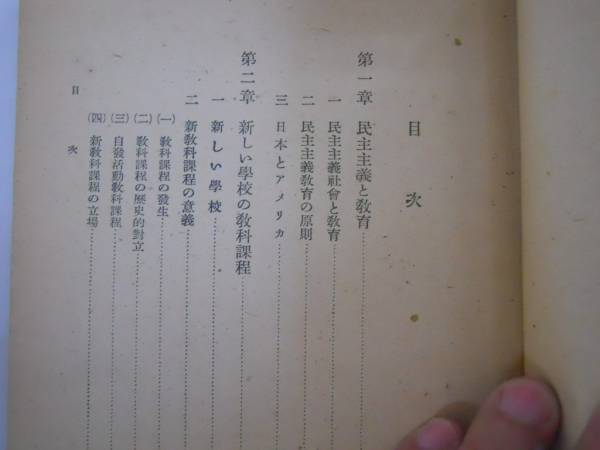 目次
第一章 民主主義と敎育
一 民主主義社會と敎育
二 民主主義敎育の原則
三 日本とアメリカ
第二章 新しい學校の敎科課程
一 新しい學校
二 新敎科課程の意義
(一) 敎科課程の發生
(二) 敎科課程の歷史的對立
(三) 自發活動敎科課程
(四) 新敎科課程の立場
目次